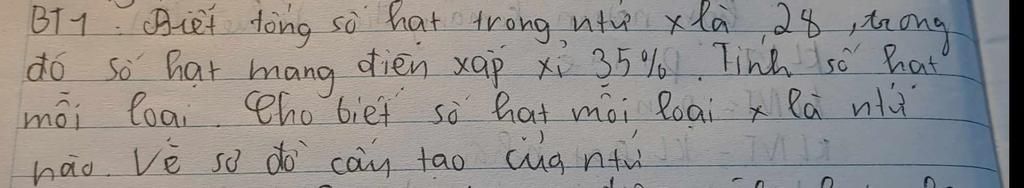 BT1. Biết tổng số hạt trong ntử x là 28, trong
đó số hạt mang điện xấp xỉ 35%. Tính số hạt
mỗi loại. Cho biết số hạt mỗi loại x là ntử
nào. Vẽ sơ đồ cấu tạo của ntử